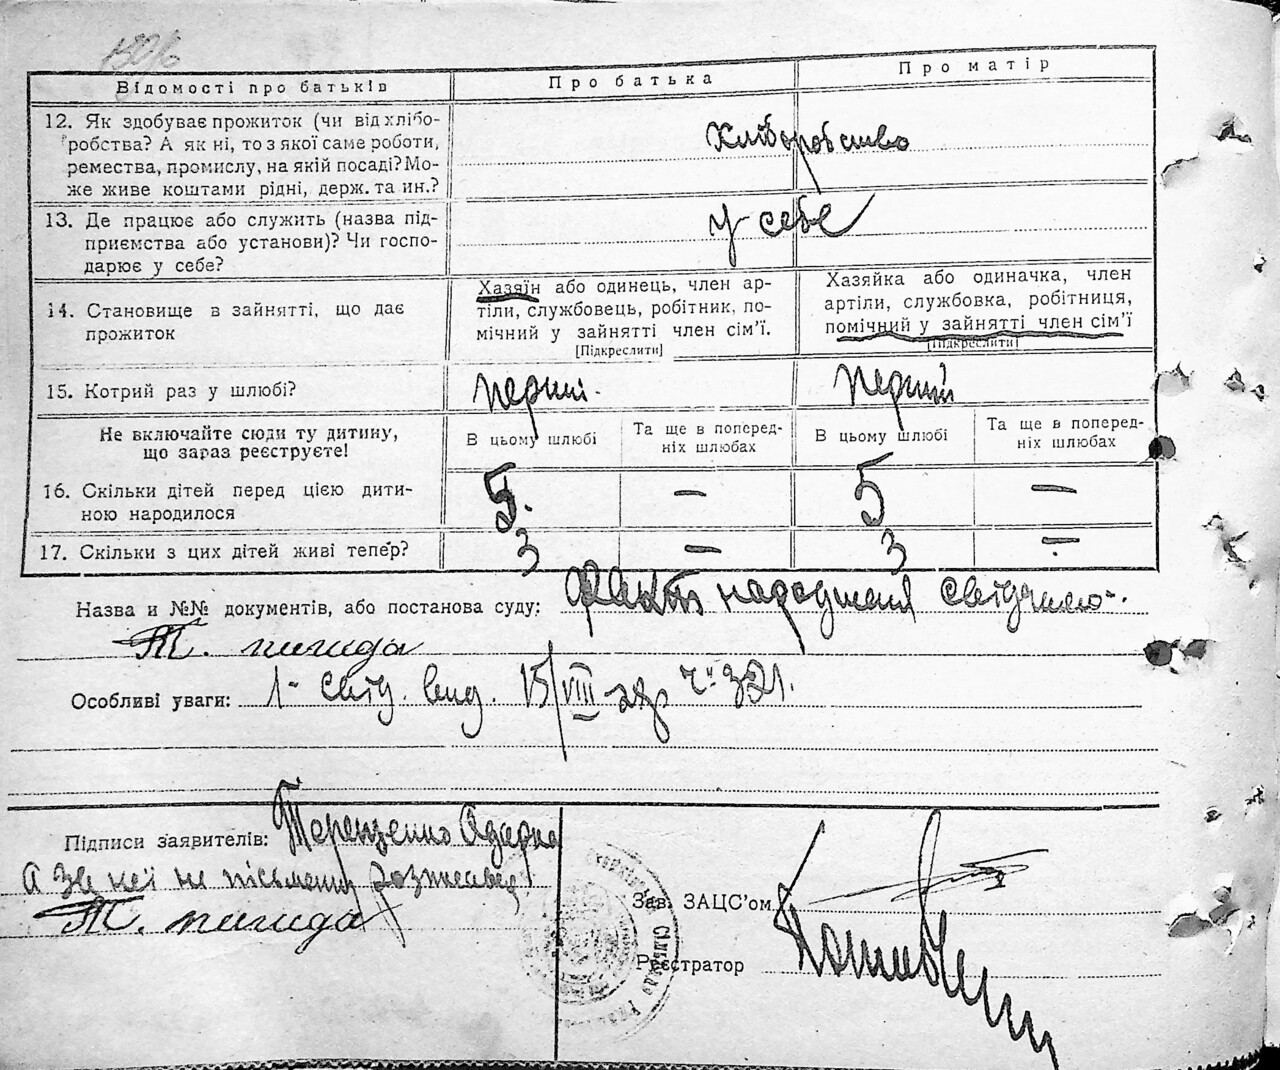 Відомості про батьків
Про батька
Про матір
12. Як здобуває прожиток (чи від хлібо-
робства? А як ні, то з якої саме роботи,
ремества, промислу, на якій посаді? Мо-
же живе коштами рідні, держ. та ин.?
Хліборобство
13. Де працює або служить (назва під-
приємства або установи)? Чи госпо-
дарює у себе?
у себе
14. Становище в зайнятті, що дає
прожиток
Хазяїн або одинець, член ар-
тіли, службовець, робітник, по-
мічний у зайнятті член сім’ї.
[Підкреслити]
Хазяйка або одиначка, член
артіли, службовка, робітниця,
помічний у зайнятті член сім’ї
[Підкреслити]
15. Котрий раз у шлюбі?
перший
перший
Не включайте сюди ту дитину,
що зараз реєструєте!
В цьому шлюбі
Та ще в поперед-
ніх шлюбах
В цьому шлюбі
Та ще в поперед-
ніх шлюбах
16. Скільки дітей перед цією дити-
ною народилося
5. — 5 —
17. Скільки з цих дітей живі тепер?
3 — 3 —
Назва и №№ документів, або постанова суду: Факт народження свідчимо
Т. пигида
Особливі уваги: 1- свід. вид. 15/VIII
Підписи заявителів:
А за неї не письменну розписався
Т. пигида
Зав. ЗАЦС’ом
Реєстратор